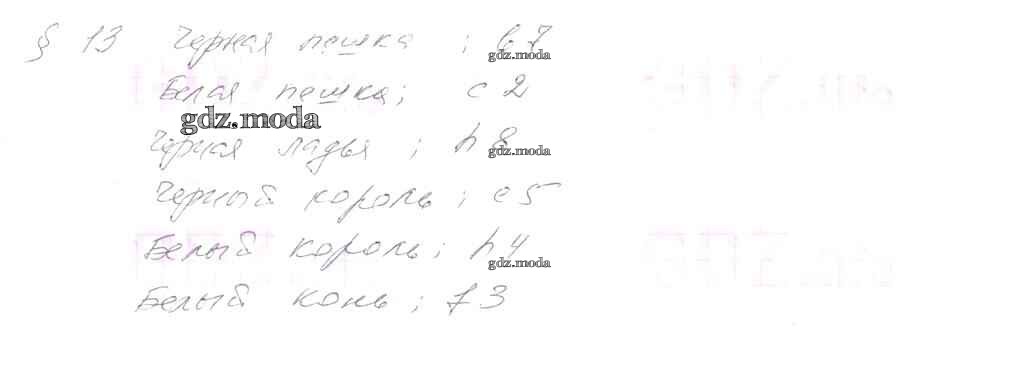 § 13 Черная пешка ; b 7
gdz.moda
Белая пешка; c 2
gdz.moda
Черная ладья ; h 8
gdz.moda
Черный король ; e 5
Белый король ; h 4
gdz.moda
Белый конь ; f 3